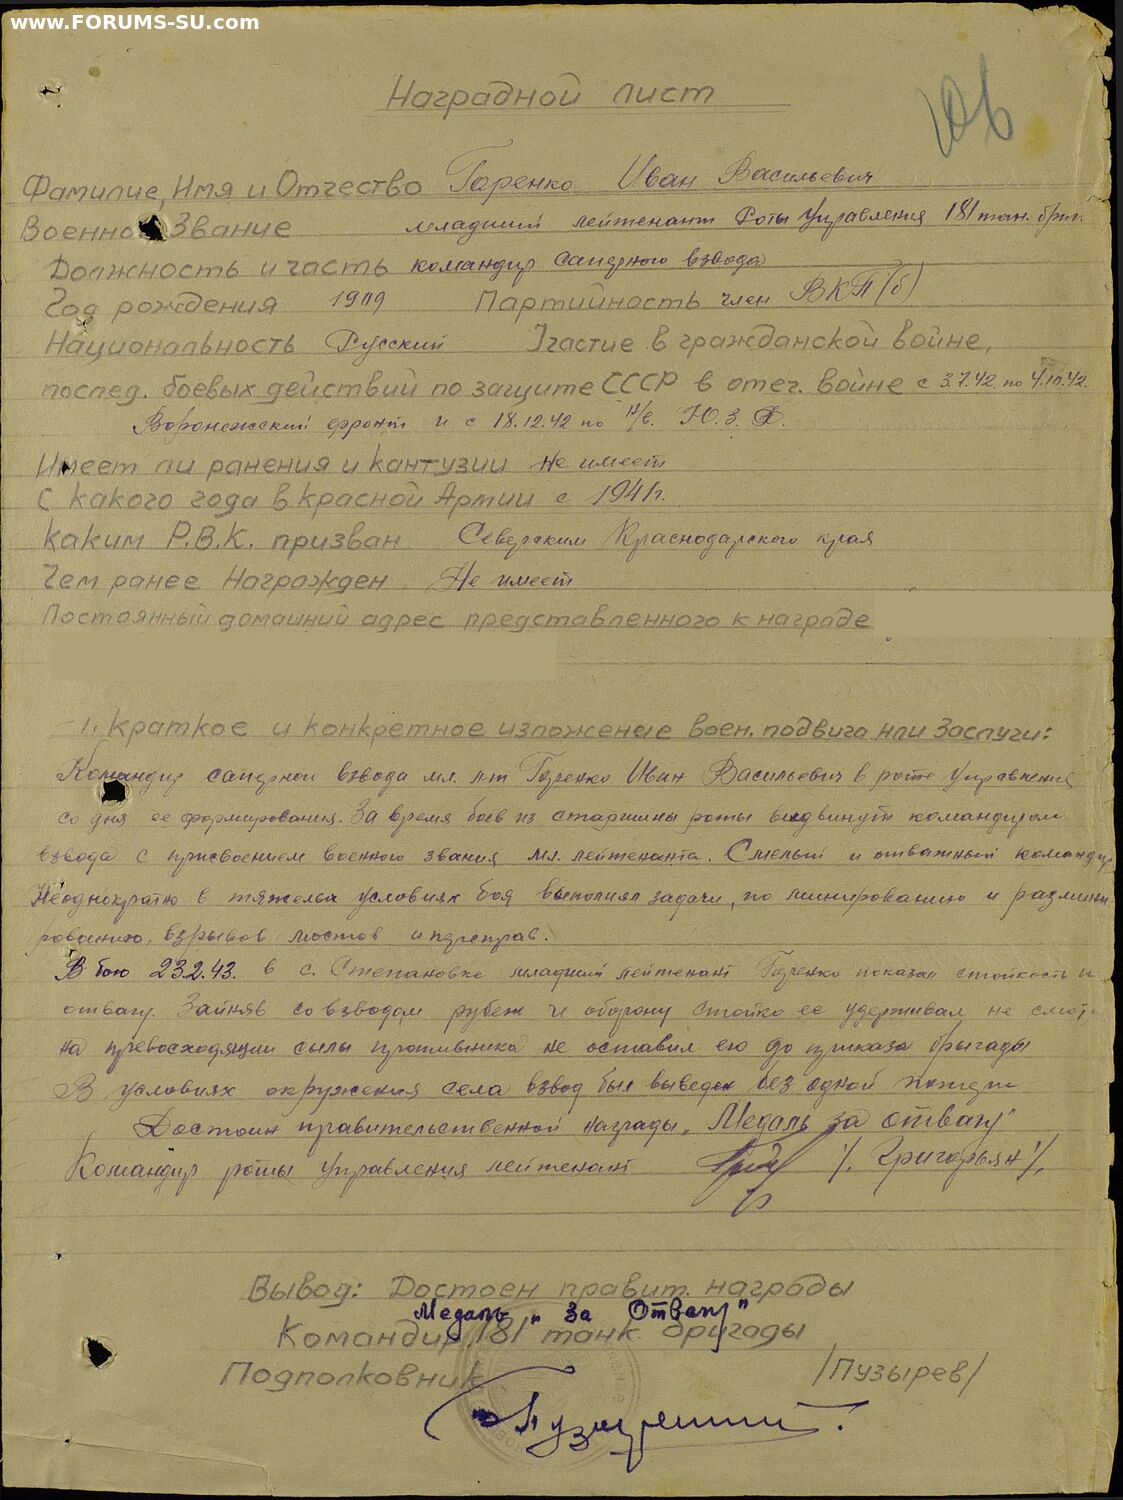 www.FORUMS-SU.com
Наградной лист
Фамилие, Имя и Отчество Горенко Иван Васильевич
Военное Звание младший лейтенант Роты Управления 181 тан. бриг
Должность и часть командир саперного взвода
Год рождения 1909 Партийность член ВКП(б)
Национальность Русский Участие в гражданской войне,
послед. боевых действий по защите СССР в отеч. войне с 3.7.42 по 4.10.42.
Воронежский фронт и с 18.12.42 по н/в. Ю.З.Ф.
Имеет ли ранения и кантузии не имеет
С какого года в Красной Армии с 1941г.
каким Р.В.К. призван Северским Краснодарского края
Чем ранее Награжден Не имеет
Постоянный домашний адрес представленного к награде
1. Краткое и конкретное изложение воен. подвига или Заслуги:
Командир саперного взвода мл. л-т Горенко Иван Васильевич в роте Управления
со дня ее формирования. За время боев из старшины роты выдвинут командиром
взвода с присвоением военного звания мл. лейтенанта. Смелый и отважный командир
Неоднократно в тяжелых условиях боя выполнял задачи, по минированию и размини
рованию, взрывов мостов и переправ.
В бою 23.2.43. в с. Степановке младший лейтенант Горенко показал стойкость и
отвагу. Заняв со взводом рубеж и оборону стойко ее удерживал не смотр
на превосходящии силы противника не оставил его до приказа бригады
В условиях окружения села взвод был выведен без одной потери
Достоин правительственной награды, Медаль за отвагу"
Командир роты Управления лейтенант /. Григорьян /.
Вывод: Достоен правит. награды
Медаль „За Отвагу"
Командир 181 танк. бригады
Подполковник /Пузырев/